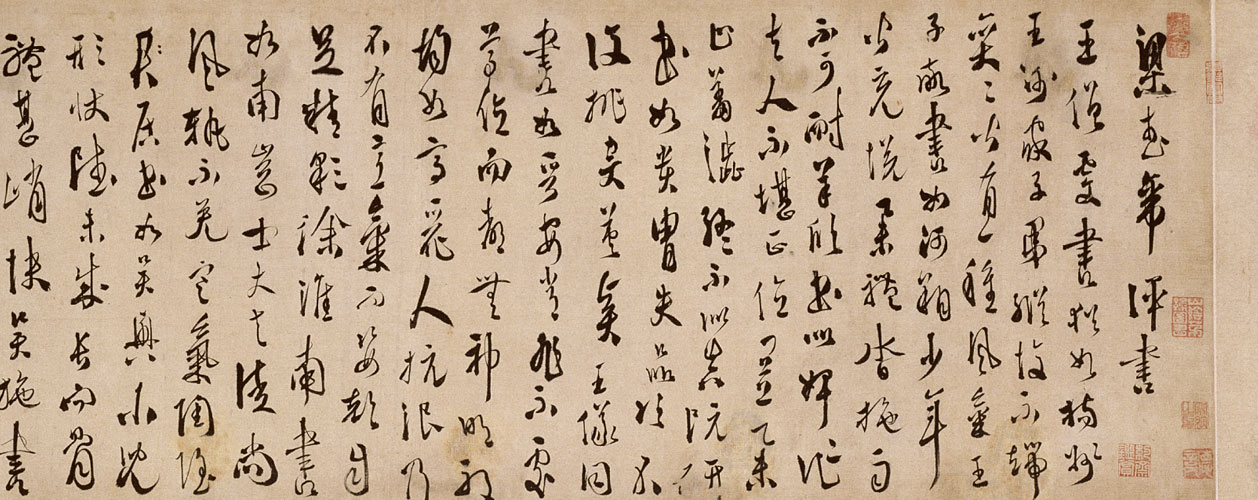 梁武帝評書
王僧虔書猶如揚州
王謝家子弟縱復不端
奕奕皆有一種風氣王
子敬書如河朔少年
皆充悅舉體沓拖而
不可耐羊欣書似婢作
夫人不堪正位
止羞澀終不似真阮研
書如貴胄失品次不
復排突英賢王儀同
書如晉安帝非不處
尊位而都無神明殷
鈞如高麗人抗浪乃
不有意氣而姿顏自
足精彩徐淮南書
如南岡士大夫徒尚
風軌不免寒氣陶隱
居書如吳興小兒
形狀雖未成長而骨
體甚峭快吳施書